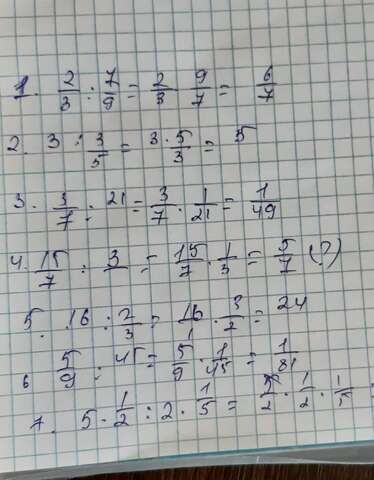 1. 2/3 : 7/9 = 2/3 9/7 = 6/7
2. 3 : 3/5 = 3·5/3 = 5
3. 3/7 : 21 = 3/7 · 1/21 = 1/49
4. 15/7 : 3 = 15/7 · 1/3 = 5/7 (?)
5. 16 : 2/3 = 16/1 · 3/2 = 24
6 5/9 : 45 = 5/9 · 1/45 = 1/81
7. 5 · 1/2 : 2 · 1/5 = 5/2 · 1/2 · 1/5